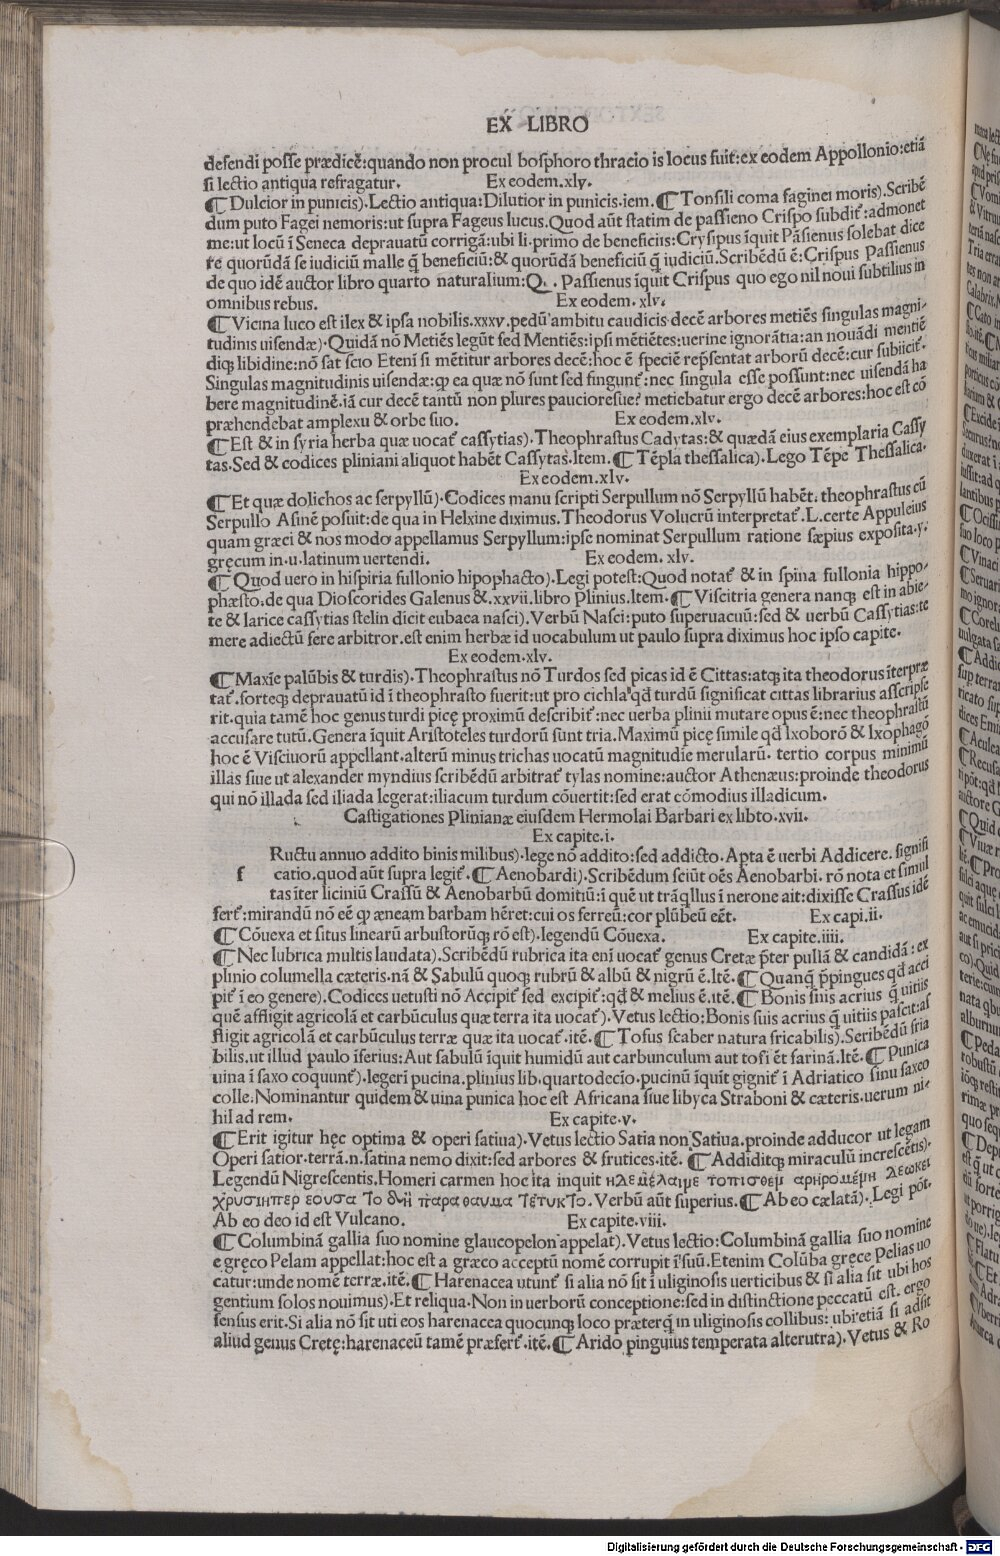 EX LIBRO
defendi posse prædicē:quando non procul bosphoro thracio is locus fuit:ex eodem Appollonio:etiā
si lectio antiqua refragatur. Ex eodem.xlv.
¶ Dulcior in punicis). Lectio antiqua:Dilutior in punicis.iem. ¶ Tonsili coma faginei moris). Scribē
dum puto Fagei nemoris:ut supra Fageus lucus. Quod aūt statim de passieno Crispo subdit̄:admonet
me:ut locū ī Seneca deprauatū corrigā:ubi li.primo de beneficiis: Crysipus īquit Pāsienus solebat dice
re quorūdā se iudiciū malle q̄ beneficiū:& quorūdā beneficiū q̄ iudiciū. Scribēdū ē: Crispus Passienus
de quo idē auctor libro quarto naturalium:Q. . Passienus īquit Crispus quo ego nil noui subtilius in
omnibus rebus. Ex eodem. xlv.
¶ Vicina luco est ilex & ipsa nobilis.xxxv.pedū ambitu caudicis decē arbores metiēs singulas magni-
tudinis uisendæ). Quidā nō Metiēs legūt sed Mentiēs:ipsi mētiētes:uerine ignorātia:an nouādi mentiē
diq; libidine:nō sat scio Etenī si mētitur arbores decē:hoc ē speciē repr̄sentat arborū decē:cur subiicit̄.
Singulas magnitudinis uisendæ:qꝫ ea quæ nō sunt sed fingunt̄:nec singula esse possunt:nec uisendā ha
bere magnitudinē.iā cur decē tantū non plures paucioresue? metiebatur ergo decē arbores:hoc est cō
præhendebat amplexu & orbe suo. Ex eodem.xlv.
¶ Est & in syria herba quæ uocat̄ cassytias). Theophrastus Cadytas:& quædā eius exemplaria Cassy
tas. Sed & codices pliniani aliquot habēt Cassytas.Item. ¶ Tēpla thessalica). Lego Tēpe Thessalica.
Ex eodem.xlv.
¶ Et quæ dolichos ac serpyllū). Codices manu scripti Serpullum nō Serpyllū habēt. theophrastus cū
Serpullo Asinē posuit:de qua in Helxine diximus. Theodorus Volucrū interpretat̄. L.certe Appuleius
quam græci & nos modo appellamus Serpyllum:ipse nominat Serpullum ratione sæpius exposita.y.
gręcum in.u.latinum uertendi. Ex eodem. xlv.
¶ Quod uero in hispiria fullonio hipophacto). Legi potest: Quod notat̄ & in spina fullonia hippo-
phæsto.de qua Dioscorides Galenus &.xxvii.libro Plinius.Item. ¶ Viscitria genera nanq; est in abie-
te & larice cassytias stelin dicit eubaea nasci). Verbū Nasci:puto superuacuū:sed & uerbū Cassytias:te
mere adiectū fere arbitror.est enim herbæ id uocabulum ut paulo supra diximus hoc ipso capite.
Ex eodem.xlv.
¶ Maxīe palūbis & turdis). Theophrastus nō Turdos sed picas id ē Cittas:atq; ita theodorus īterpræ
tat̄. forteq; deprauatū id ī theophrasto fuerit:ut pro cichla qđ turdū significat cittas librarius asscripse
rit.quia tamē hoc genus turdi picę proximū describit̄:nec uerba plinii mutare opus ē:nec theophrastū
accusare tutū. Genera īquit Aristoteles turdorū sunt tria. Maximū picę simile qđ Ixoborō & Ixophagō
hoc ē Visciuorū appellant.alterū minus trichas uocatū magnitudīe merularū. tertio corpus minimū
illas siue ut alexander myndius scribēdū arbitrat̄ tylas nomine:auctor Athenæus:proinde theodorus
qui nō illada sed iliada legerat:iliacum turdum cōuertit:sed erat cōmodius illadicum.
Castigationes Plinianæ eiusdem Hermolai Barbari ex libto.xvii.
Ex capite.i.
f Ructu annuo addito binis milibus). lege nō addito:sed addicto. Apta ē uerbi Addicere. signifi
catio.quod aūt supra legit̄. ¶ Aenobardi). Scribēdum sciūt oēs Aenobarbi. rō nota et simul
tas īter liciniū Crassū & Aenobarbū domitiū:ī quē ut trāqllus ī nerone ait:dixisse Crassus idē
fert̄:mirandū nō eē qꝫ æneam barbam hēret:cui os ferreū:cor plūbeū eēt. Ex capi.ii.
¶ Cōuexa et situs linearū arbustorūq; rō est). legendū Cōuexa. Ex capite.iiii.
¶ Nec lubrica multis laudata). Scribēdū rubrica ita enī uocat̄ genus Cretæ p̄ter pullā & candidā: ex
plinio columella cæteris.nā & Sabulū quoq; rubrū & albū & nigrū ē.Itē. ¶ Quanq̄ p̄pingues qđ acci
pit̄ ī eo genere). Codices uetusti nō Accipit̄ sed excipit̄:qđ & melius ē.itē. ¶ Bonis suis acrius q̄ uitiis
quē affligit agricolā et carbūculus quæ terra ita uocat̄). Vetus lectio: Bonis suis acrius q̄ uitiis pascit:af
fligit agricolā et carbūculus terræ quæ ita uocat̄.itē. ¶ Tofus scaber natura fricabilis). Scribēdū fria
bilis.ut illud paulo īferius: Aut sabulū īquit humidū aut carbunculum aut tofi ēt farinā.Itē. ¶ Punica
uina ī saxo coquunt̄). legerī pucina.plinius lib.quartodecīo.pucinū īquit gignit̄ ī Adriatico sinu saxeo
colle. Nominantur quidem & uina punica hoc est Africana siue libyca Straboni & cæteris.uerum ni-
hil ad rem. Ex capite.v.
¶ Erit igitur hęc optima & operi satiua). Vetus lectio Satia non Satiua.proinde adducor ut legam
Operi satior.terrā.n.satina nemo dixit:sed arbores & frutices.itē. ¶ Addiditq; miraculū increscētis).
Legendū Nigrescentis. Homeri carmen hoc ita inquit
Verbū aūt superius. ¶ Ab eo cælatā). Legi pōt.
Ab eo deo id est Vulcano. Ex capite.viii.
¶ Columbinā gallia suo nomine glaucopelon appelat). Vetus lectio: Columbinā gallia suo nomine
e gręco Pelam appellat:hoc est a græco acceptū nomē corrupit ī suū. Etenim Colūba gręce Pelias uo
catur:unde nomē terræ.itē. ¶ Harenacea utunt̄ si alia nō sit ī uliginosis uerticibus & si alia sit ubi hos
gentium solos nouimus). Et reliqua. Non in uerborū conceptione:sed in distinctione peccatū est. ergo
sensus erit. Si alia nō sit uti eos harenacea quocunq; loco præterq̄ in uliginosis collibus: ubi etiā si adsit
aliud genus Cretę:harenaceū tamē præfert̄.itē. ¶ Arido pinguius temperata alterutra). Vetus & Ro
Digitalisierung gefördert durch die Deutsche Forschungsgemeinschaft - DFG